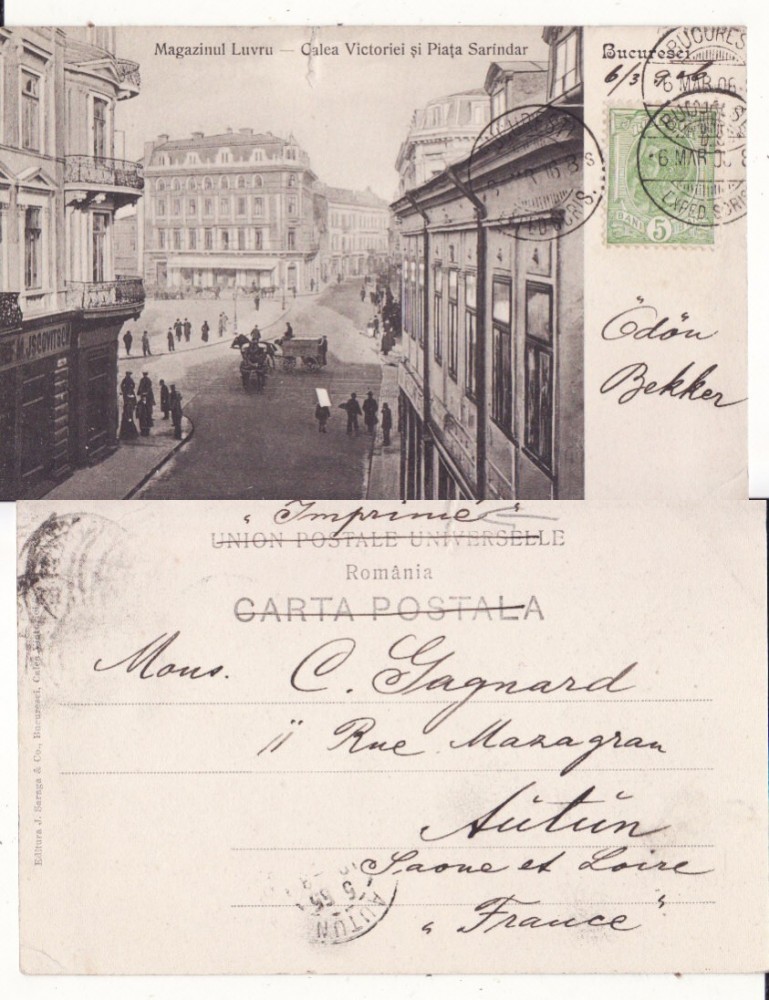 Magazinul Luvru — Calea Victoriei și Piața Sarindar
Bucuresci
6/3 906
BUCURESCI
6 MAR 06
EXPED. SCRIS.
BUCURESCI
6 MAR 06
EXPED. SCRIS.
BANI 5
Ödön
Bekker
M. JSCOVITSCH
"Imprimé"
UNION POSTALE UNIVERSELLE
România
CARTA POSTALA
Mons. C. Gagnard
11 Rue Mazagran
Autun
Saone et Loire
"France"
AUTUN
Editura J. Saraga & Co., Bucuresci, Calea